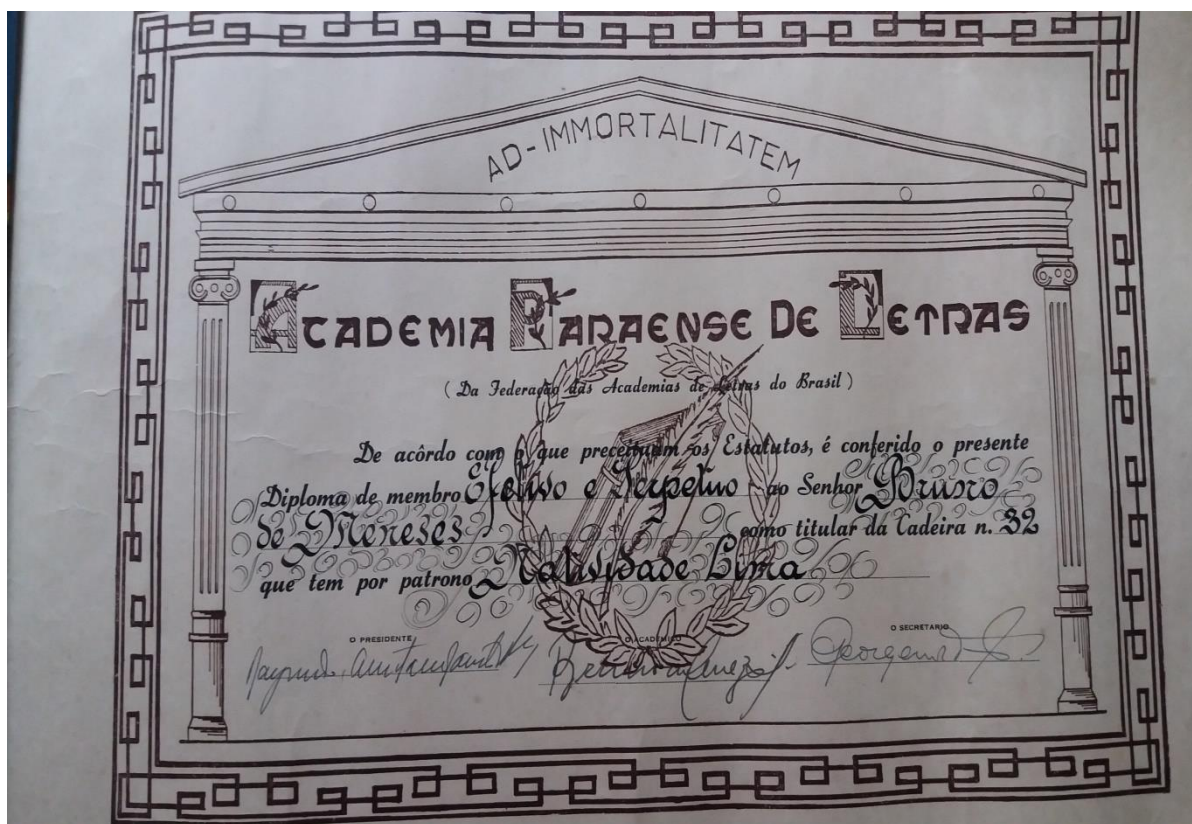 AD-IMMORTALITATEM
ACADEMIA PARAENSE DE LETRAS
( Da Federação das Academias de Letras do Brasil )
De acôrdo com o que preceituam os Estatutos, é conferido o presente
Diploma de membro Efetivo e Perpetuo ao Senhor Bruno
de Meneses como titular da Cadeira n. 32
que tem por patrono Natividade Lima
O PRESIDENTE
O ACADÊMICO
O SECRETARIO